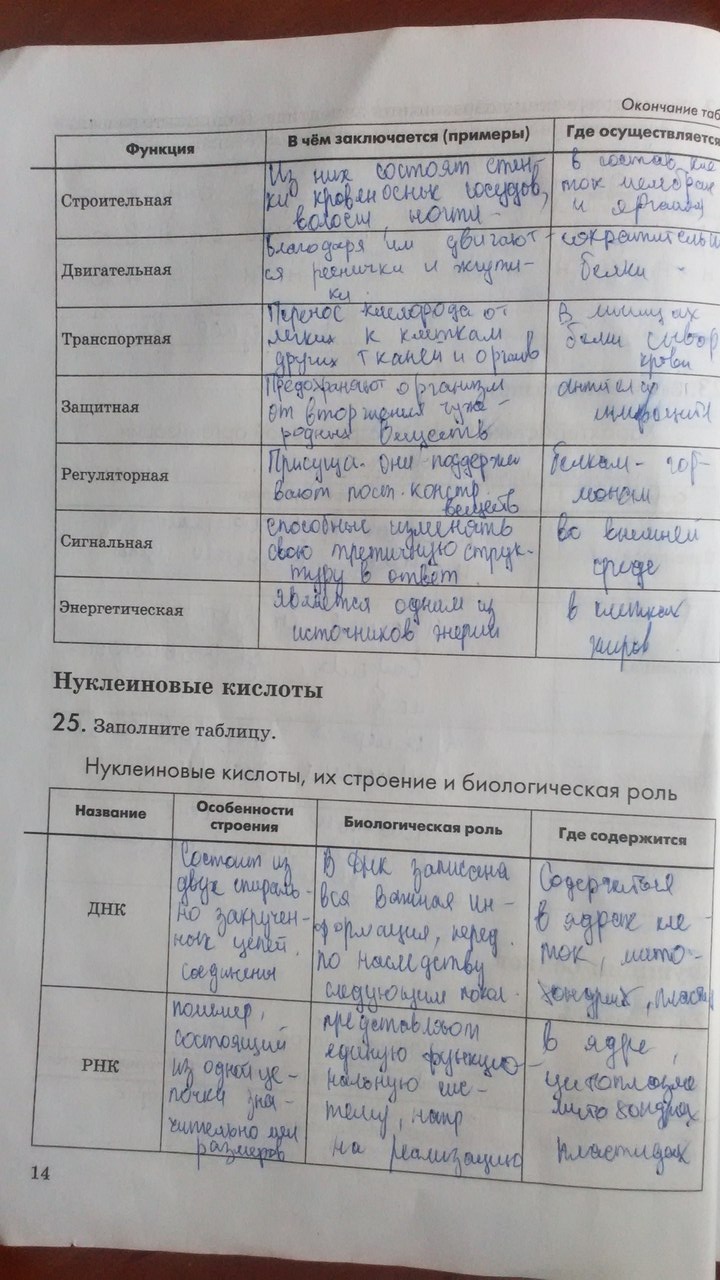 Окончание таб
Функция
В чём заключается (примеры)
Где осуществляется
Строительная
Из них состоят стен-
ки кровеносных сосудов,
волосы, ногти -
в состав кле
ток мембран
и
Двигательная
Благодаря им двигают-
ся реснички и жгути-
ки.
сократительн
белки -
Транспортная
Перенос кислорода от
легких к клеткам
других тканей и органов
В мышцах
белки сывор
крови
Защитная
Предохраняют организм
от вторжения чуже-
родных веществ
антитела
Регуляторная
Присуща. Они поддержи
вают пост. констр.
веществ
белкам - гор-
монам
Сигнальная
способные изменять
свою третичную струк-
туру в ответ.
во внешней
среде
Энергетическая
Является одним из
источников энергии
в клетках
жиров
Нуклеиновые кислоты
25. Заполните таблицу.
Нуклеиновые кислоты, их строение и биологическая роль
Название
Особенности
строения
Биологическая роль
Где содержится
ДНК
Состоит из
двух спираль-
но закручен-
ных цепей.
соединены
В ДНК записана
вся важная ин-
формация, перед.
по наследству
следующим покол.
Содержаться
в ядрах кле-
ток, мито-
хондрих, пласти
РНК
полимер,
состоящий
из одной це-
почки зна-
чительно мен
размеров
представляют
единую функцио-
нальную сис-
тему, напр
на реализацию
в ядре,
цитоплазме
митохондриях
пластидах
14